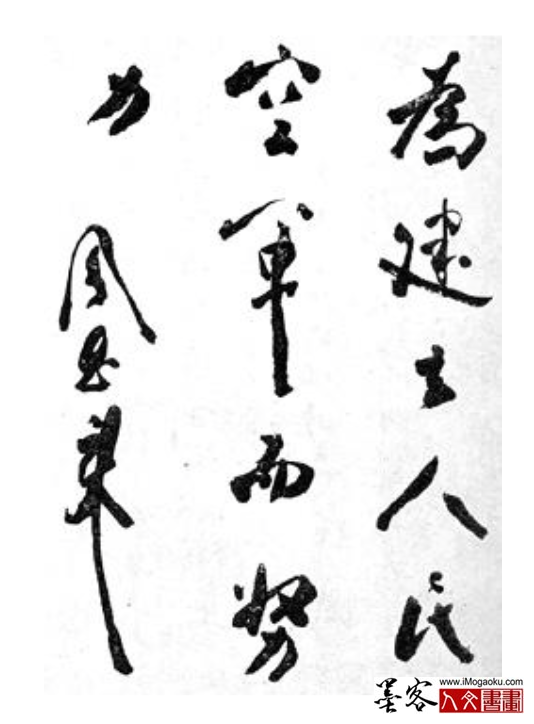 為建立人民
空軍而努
力 周恩来
www.iMogaoku.com
墨客
人文書畫